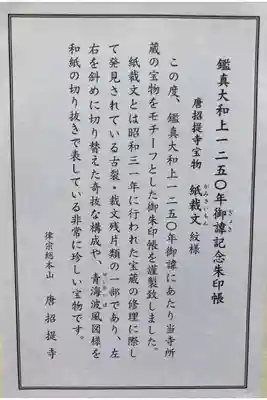 鑑真大和上一二五〇年御諱記念朱印帳
唐招提寺宝物 紙裁文 紋様
この度、鑑真大和上一二五〇年御諱にあたり当寺所
蔵の宝物をモチーフとした御朱印帳を謹製致しました。
紙裁文とは昭和三一年に行われた宝蔵の修理に際し
て発見されている古裂・裁文残片類の一部であり、左
右を斜めに切り替えた奇抜な構成や、青海波風図様を
和紙の切り抜きで表している非常に珍しい宝物です。
律宗総本山 唐招提寺